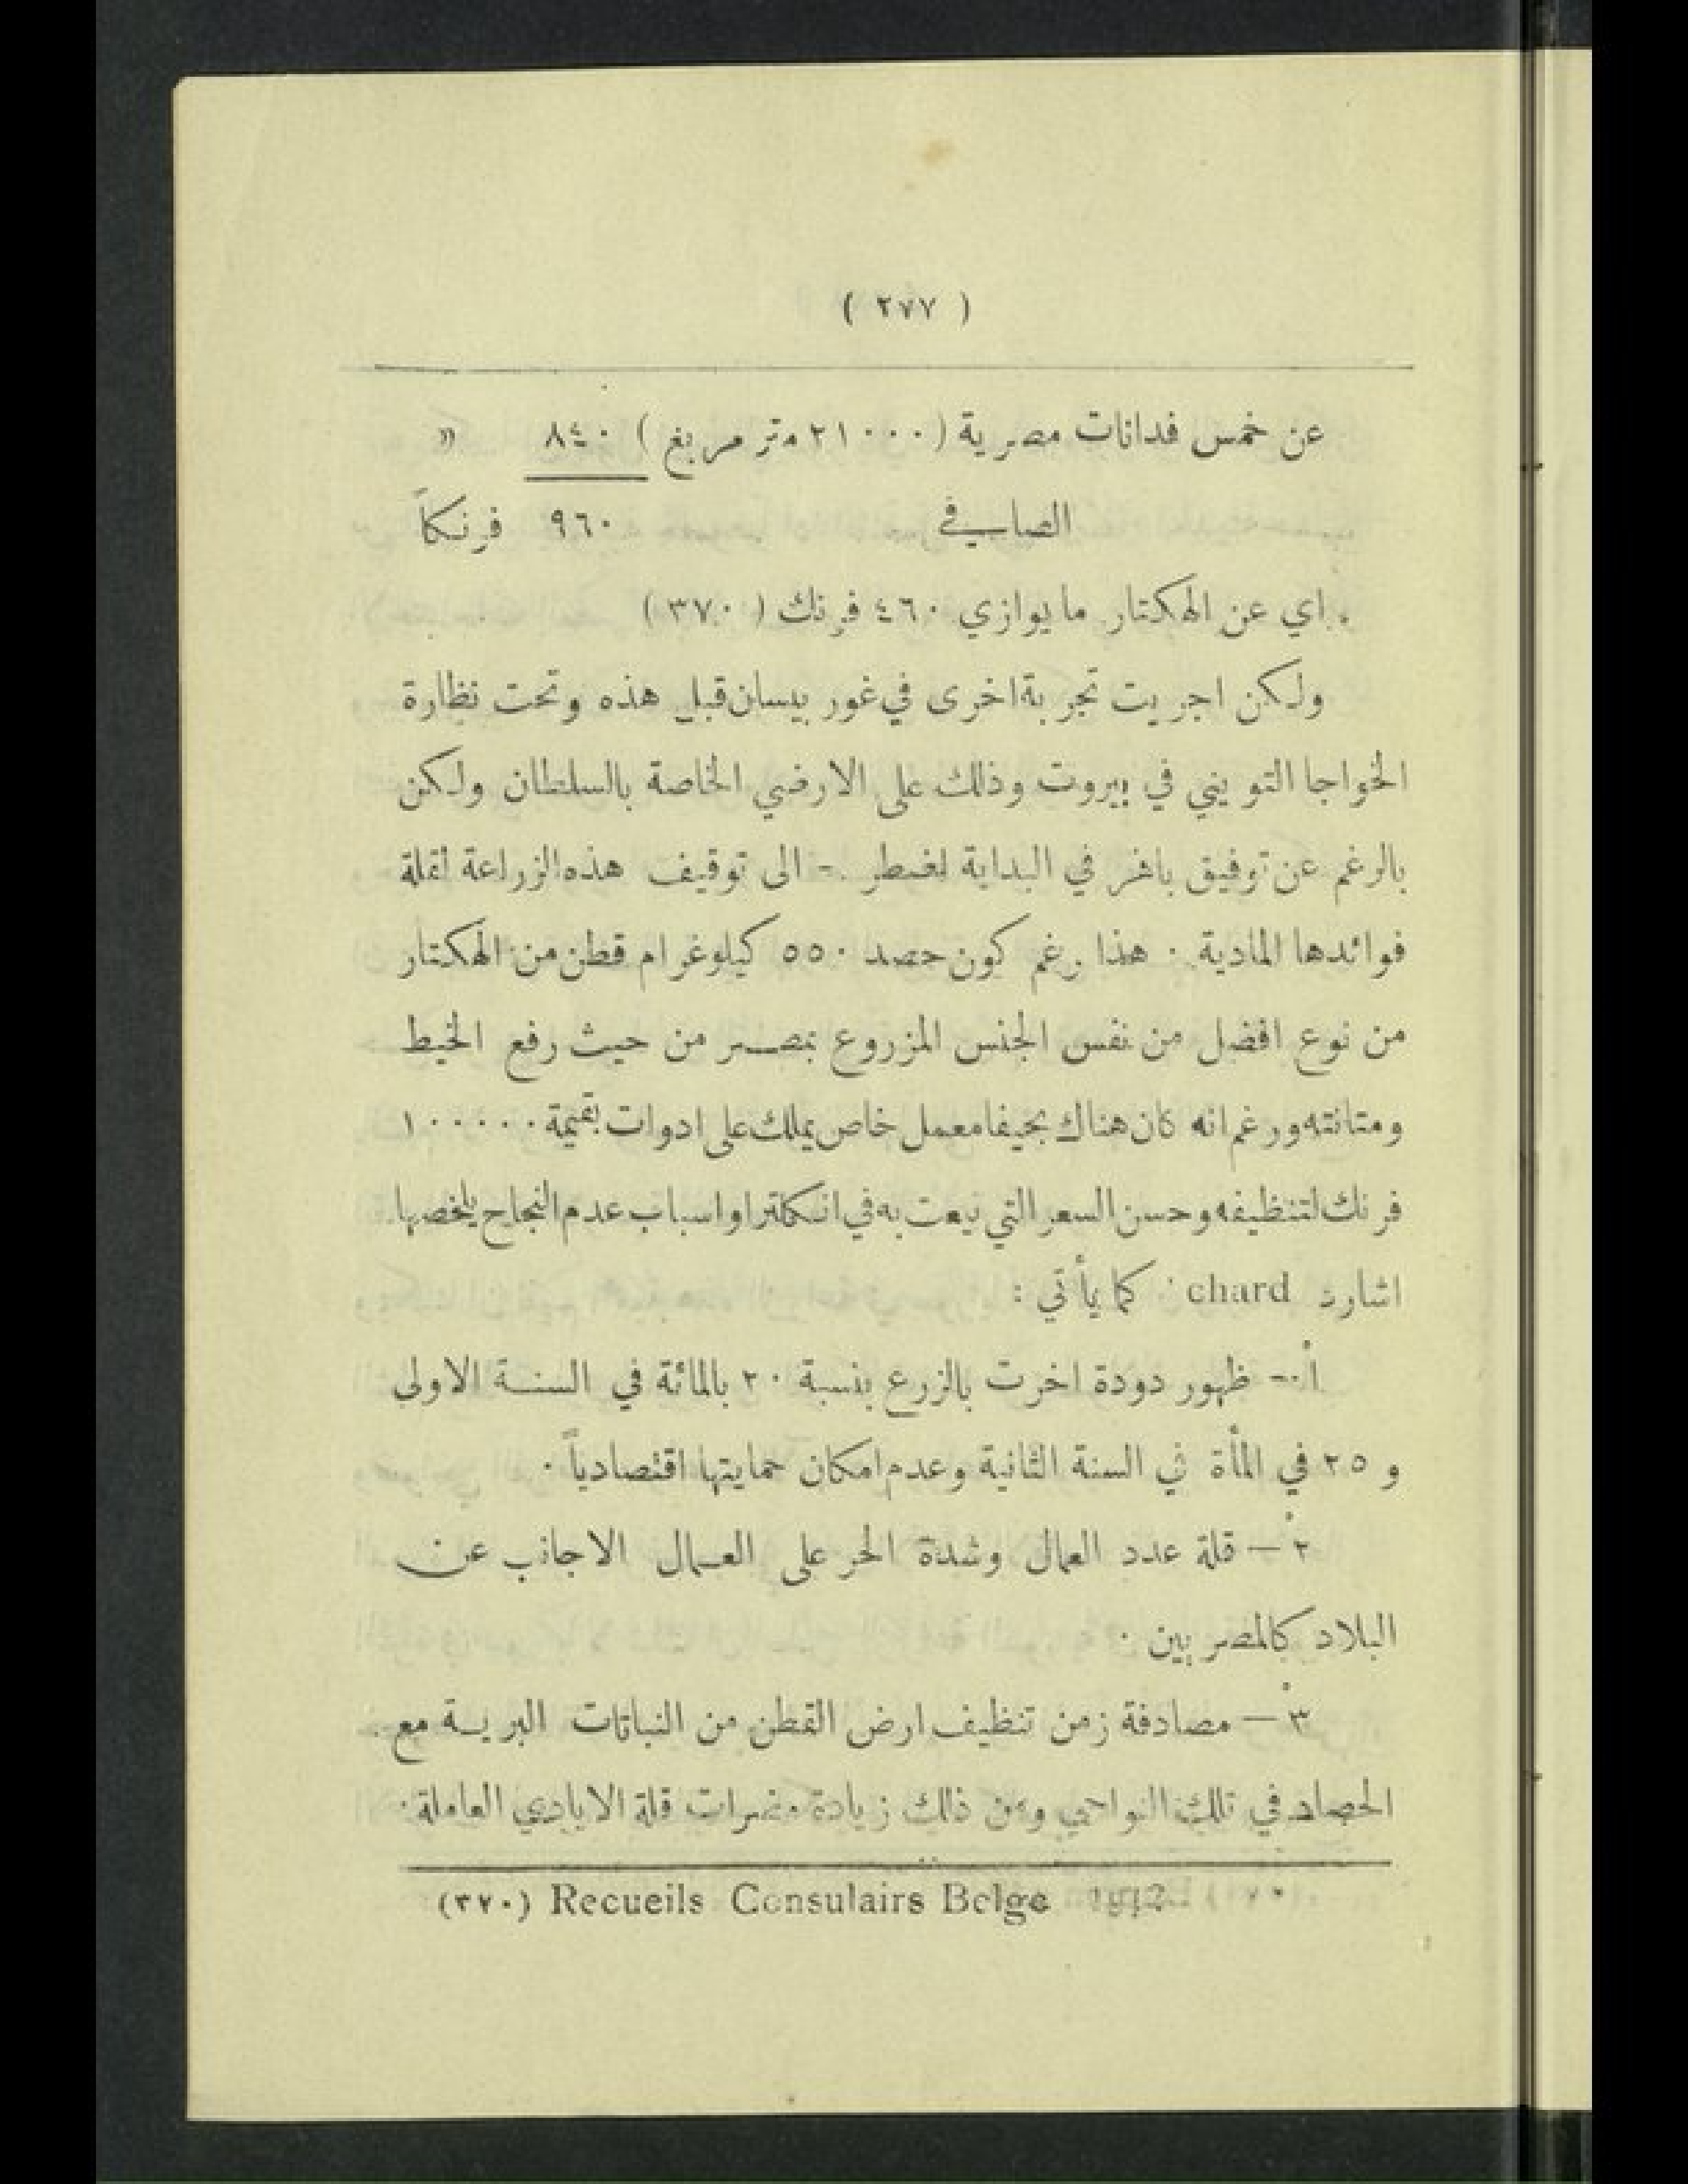 ( ٢٧٧ )
عن خمس فدانات مصرية ( ٢١٠٠٠ متر مربع ) ٨٤٠ »
الصافي ٩٦٠ فرنكاً
اي عن الهكتار ما يوازي ٤٦٠ فرنك ( ٣٧٠ )
ولكن اجريت تجربة اخرى في غور بيسان قبل هذه وتحت نظارة
الخواجا التويني في بيروت وذلك على الارضي الخاصة بالسلطان ولكن
بالرغم عن توفيق باهر في البداية الى توقيف هذه الزراعة لقلة
فوائدها المادية . هذا رغم كون حصد ٥٥٠ كيلوغرام قطن من الهكتار
من نوع افضل من نفس الجنس المزروع بمصر من حيث رفع الخيط
ومتانته ورغم انه كان هناك بحيفا معمل خاص يملك على ادوات بقيمة ١٠٠٠٠٠
فرنك لتنظيفه وحسن السعر التي بيعت به في انكلترا واسباب عدم النجاح يلخصها
اشارد chard كما يأتي :
أ - ظهور دودة اخرت بالزرع بنسبة ٢٠ بالمائة في السنة الاولى
و ٢٥ في المأة في السنة الثانية وعدم امكان حمايتها اقتصادياً .
٢ — قلة عدد العمال وشدة الحر على العمال الاجانب عن
البلاد كالمصريين .
٣ — مصادفة زمن تنظيف ارض القطن من النباتات البرية مع
الحصاد في تلك النواحي ومن ذلك زيادة مضرات قلة الايادي العاملة .
(٣٧٠) Recueils Consulairs Belge 1912